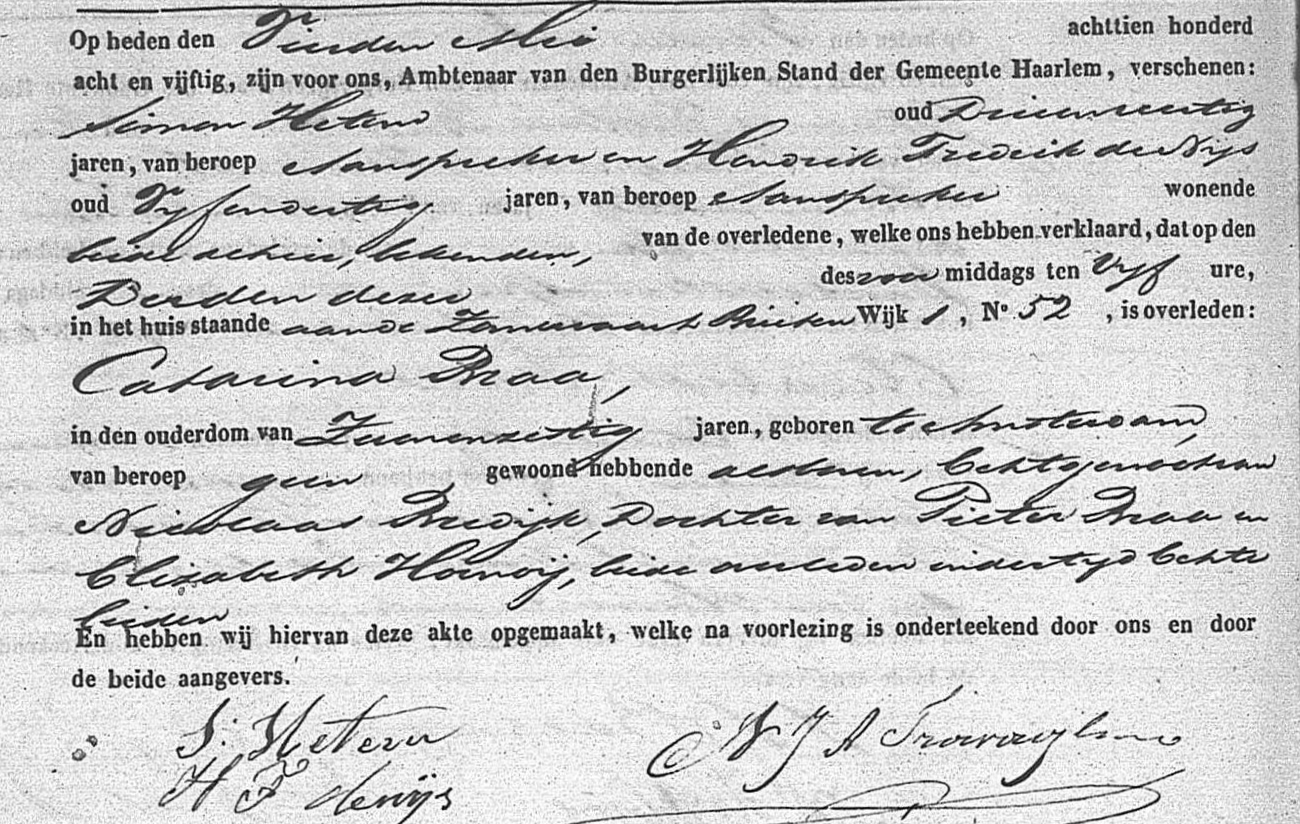 Op heden den Vierden Mei achttien honderd
acht en vijftig, zijn voor ons, Ambtenaar van den Burgerlijken Stand der Gemeente Haarlem, verschenen:
Simon Hetem oud Drieenveertig
jaren, van beroep Aanspreker en Hendrik Fredrik de Nijs
oud Vyfendertig jaren, van beroep Aanspreker wonende
beide alhier, bekenden, van de overledene, welke ons hebben verklaard, dat op den
Derden dezer des voor middags ten Vyf ure,
in het huis staande aan de Wijk 1, No 52, is overleden:
Catarina Braa,
in den ouderdom van Zevenenzestig jaren, geboren te Amsterdam,
van beroep geen gewoond hebbende alhier, Echtgenoote van
Nicolaas Dochter van Pieter Braa en
Elizabeth beide overleden indertyd Echte
lieden
En hebben wij hiervan deze akte opgemaakt, welke na voorlezing is onderteekend door ons en door
de beide aangevers.
S. Hetem
H F de nijs